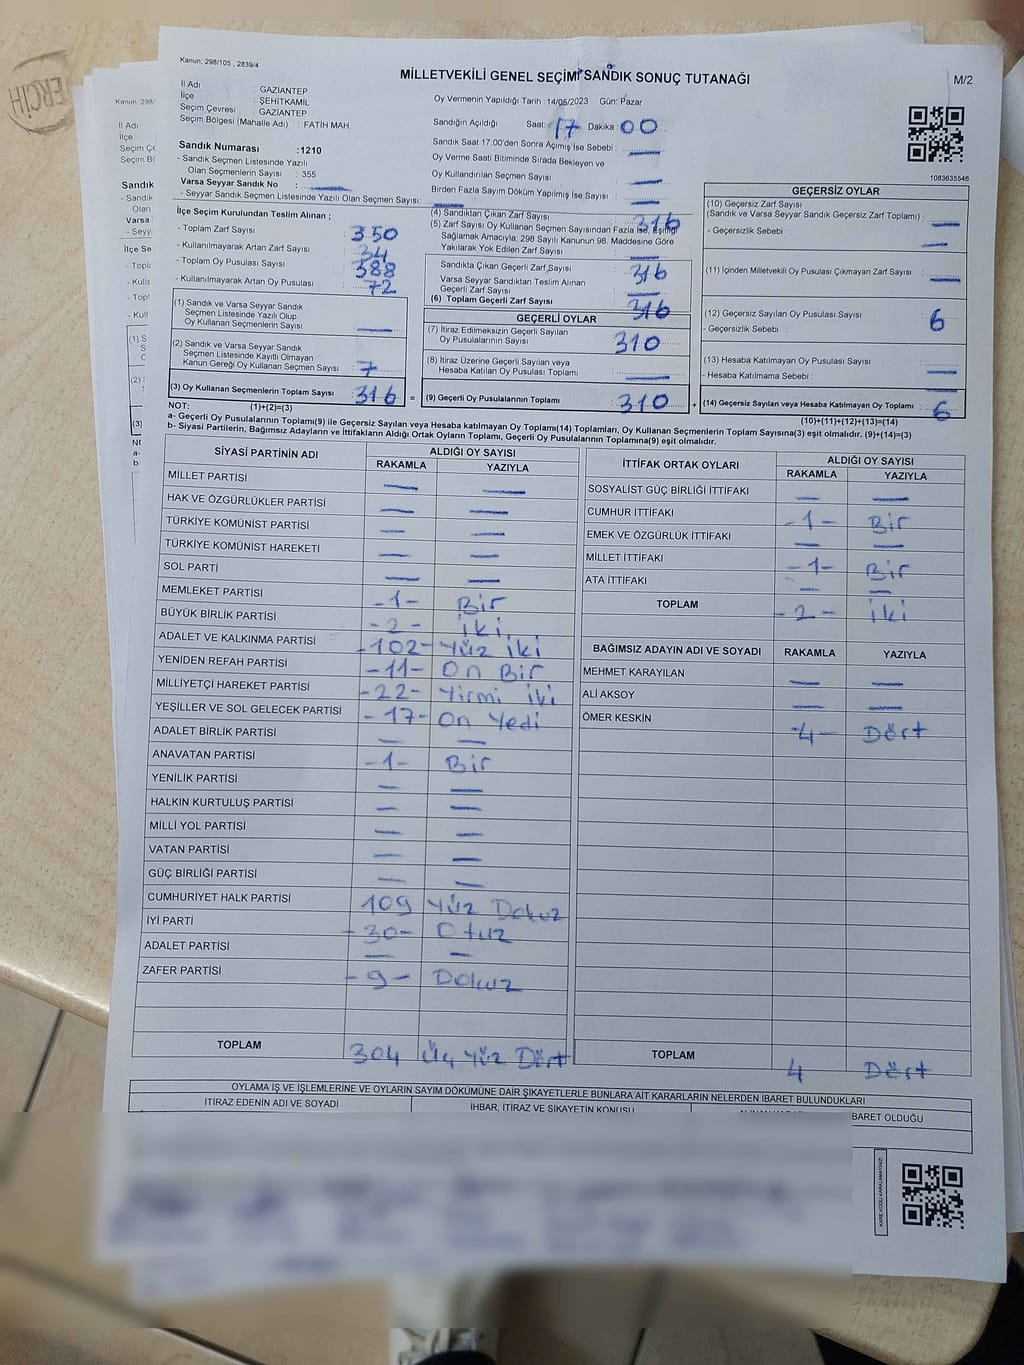 Kanun; 298/105 , 2839/4
MİLLETVEKİLİ GENEL SEÇİMİ SANDIK SONUÇ TUTANAĞI
M/2
İl Adı : GAZİANTEP
İlçe : ŞEHİTKAMİL
Seçim Çevresi : GAZİANTEP
Seçim Bölgesi (Mahalle Adı) : FATİH MAH.
Sandık Numarası :1210
- Sandık Seçmen Listesinde Yazılı
Olan Seçmenlerin Sayısı : 355
Varsa Seyyar Sandık No : —
- Seyyar Sandık Seçmen Listesinde Yazılı Olan Seçmen Sayısı: —
Oy Vermenin Yapıldığı Tarih : 14/05/2023 Gün: Pazar
Sandığın Açıldığı Saat: 17 Dakika : 00
Sandık Saat 17:00'den Sonra Açılmış İse Sebebi : —
Oy Verme Saati Bitiminde Sırada Bekleyen ve
Oy Kullandırılan Seçmen Sayısı : —
Birden Fazla Sayım Döküm Yapılmış İse Sayısı : —
1083635546
İlçe Seçim Kurulundan Teslim Alınan ;
- Toplam Zarf Sayısı : 350
- Kullanılmayarak Artan Zarf Sayısı : 34
- Toplam Oy Pusulası Sayısı : 388
- Kullanılmayarak Artan Oy Pusulası : 72
(1) Sandık ve Varsa Seyyar Sandık
Seçmen Listesinde Yazılı Olup
Oy Kullanan Seçmenlerin Sayısı : —
(2) Sandık ve Varsa Seyyar Sandık
Seçmen Listesinde Kayıtlı Olmayan
Kanun Gereği Oy Kullanan Seçmen Sayısı : 7
(3) Oy Kullanan Seçmenlerin Toplam Sayısı : 316 =
(4) Sandıktan Çıkan Zarf Sayısı : 316
(5) Zarf Sayısı Oy Kullanan Seçmen Sayısından Fazla İse, Eşitliği
Sağlamak Amacıyla, 298 Sayılı Kanunun 98. Maddesine Göre
Yakılarak Yok Edilen Zarf Sayısı : —
Sandıkta Çıkan Geçerli Zarf Sayısı : 316
Varsa Seyyar Sandıktan Teslim Alınan
Geçerli Zarf Sayısı : —
(6) Toplam Geçerli Zarf Sayısı : 316
GEÇERLİ OYLAR
(7) İtiraz Edilmeksizin Geçerli Sayılan
Oy Pusulalarının Sayısı : 310
(8) İtiraz Üzerine Geçerli Sayılan veya
Hesaba Katılan Oy Pusulası Toplamı : —
(9) Geçerli Oy Pusulalarının Toplamı : 310 +
GEÇERSİZ OYLAR
(10) Geçersiz Zarf Sayısı
(Sandık ve Varsa Seyyar Sandık Geçersiz Zarf Toplamı) : —
- Geçersizlik Sebebi : —
(11) İçinden Milletvekili Oy Pusulası Çıkmayan Zarf Sayısı : —
(12) Geçersiz Sayılan Oy Pusulası Sayısı : 6
- Geçersizlik Sebebi :
(13) Hesaba Katılmayan Oy Pusulası Sayısı : —
- Hesaba Katılmama Sebebi : —
(14) Geçersiz Sayılan veya Hesaba Katılmayan Oy Toplamı : 6
NOT: (1)+(2)=(3) (10)+(11)+(12)+(13)=(14)
a- Geçerli Oy Pusulaları Toplamı(9) ile Geçersiz Sayılan veya Hesaba katılmayan Oy Toplamı(14) Toplamları, Oy Kullanan Seçmenlerin Toplam Sayısına(3) eşit olmalıdır. (9)+(14)=(3)
b- Siyasi Partilerin, Bağımsız Adayların ve İttifakların Aldığı Ortak Oyların Toplamı, Geçerli Oy Pusulalarının Toplamına(9) eşit olmalıdır.
SİYASİ PARTİNİN ADI ALDIĞI OY SAYISI
RAKAMLA YAZIYLA
MİLLET PARTİSİ — —
HAK VE ÖZGÜRLÜKLER PARTİSİ — —
TÜRKİYE KOMÜNİST PARTİSİ — —
TÜRKİYE KOMÜNİST HAREKETİ — —
SOL PARTİ — —
MEMLEKET PARTİSİ -1- Bir
BÜYÜK BİRLİK PARTİSİ -2- iki
ADALET VE KALKINMA PARTİSİ -102- Yüz iki
YENİDEN REFAH PARTİSİ -11- On Bir
MİLLİYETÇİ HAREKET PARTİSİ -22- Yirmi iki
YEŞİLLER VE SOL GELECEK PARTİSİ -17- On Yedi
ADALET BİRLİK PARTİSİ — —
ANAVATAN PARTİSİ -1- Bir
YENİLİK PARTİSİ — —
HALKIN KURTULUŞ PARTİSİ — —
MİLLİ YOL PARTİSİ — —
VATAN PARTİSİ — —
GÜÇ BİRLİĞİ PARTİSİ — —
CUMHURİYET HALK PARTİSİ 109 Yüz Dokuz
İYİ PARTİ -30- Otuz
ADALET PARTİSİ — —
ZAFER PARTİSİ -9- Dokuz
TOPLAM 304 Üç Yüz Dört
İTTİFAK ORTAK OYLARI ALDIĞI OY SAYISI
RAKAMLA YAZIYLA
SOSYALİST GÜÇ BİRLİĞİ İTTİFAKI — —
CUMHUR İTTİFAKI -1- Bir
EMEK VE ÖZGÜRLÜK İTTİFAKI — —
MİLLET İTTİFAKI -1- Bir
ATA İTTİFAKI — —
TOPLAM -2- iki
BAĞIMSIZ ADAYIN ADI VE SOYADI RAKAMLA YAZIYLA
MEHMET KARAYILAN — —
ALİ AKSOY — —
ÖMER KESKİN -4- Dört
TOPLAM 4 Dört
OYLAMA İŞ VE İŞLEMLERİNE VE OYLARIN SAYIM DÖKÜMÜNE DAİR ŞİKAYETLERLE BUNLARA AİT KARARLARIN NELERDEN İBARET BULUNDUKLARI
İTİRAZ EDENİN ADI VE SOYADI İHBAR, İTİRAZ VE ŞİKAYETİN KONUSU BARET OLDUĞU
KARE KODU KARALAMAYINIZ!